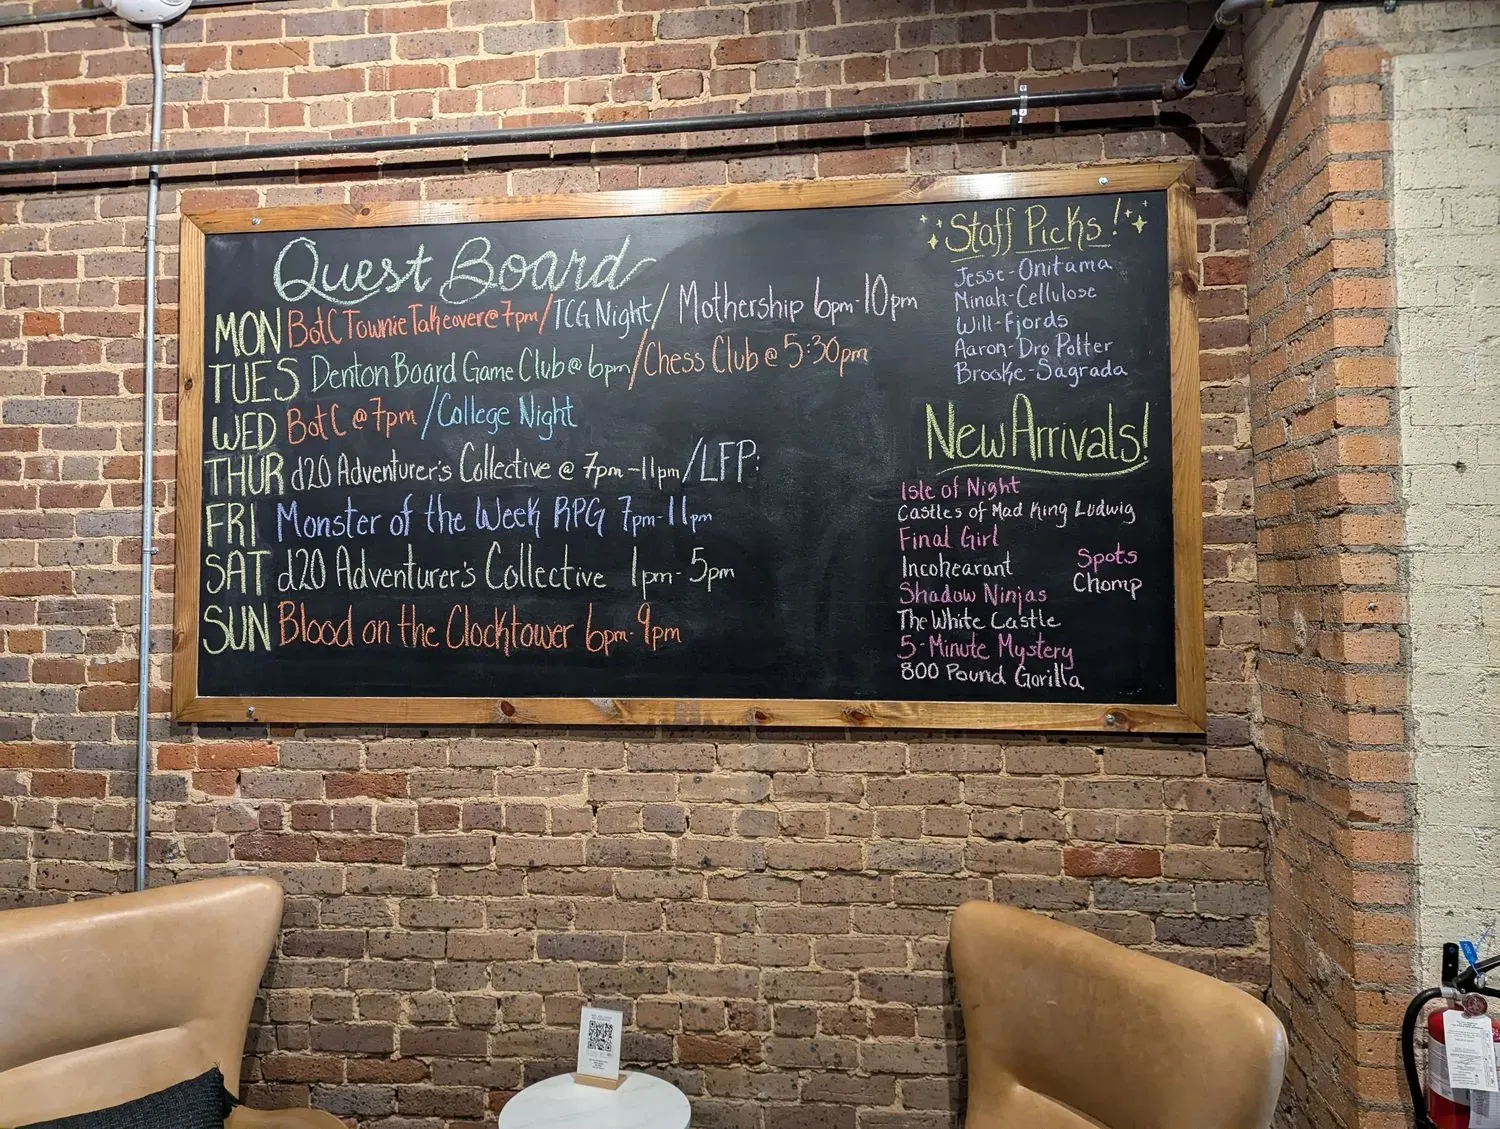 Quest Board
MON BotC Townie Takeover @ 7pm / TCG Night / Mothership 6pm-10pm
TUES Denton Board Game Club @ 6pm / Chess Club @ 5:30pm
WED BotC @ 7pm / College Night
THUR d20 Adventurer's Collective @ 7pm-11pm / LFP:
FRI Monster of the Week RPG 7pm-11pm
SAT d20 Adventurer's Collective 1pm-5pm
SUN Blood on the Clocktower 6pm-9pm
Staff Picks!
Jesse-Onitama
Minah-Cellulose
Will-Fjords
Aaron-Dro Polter
Brooke-Sagrada
New Arrivals!
Isle of Night
Castles of Mad King Ludwig
Final Girl
Incohearant
Shadow Ninjas
The White Castle
5-Minute Mystery
800 Pound Gorilla
Spots
Chomp